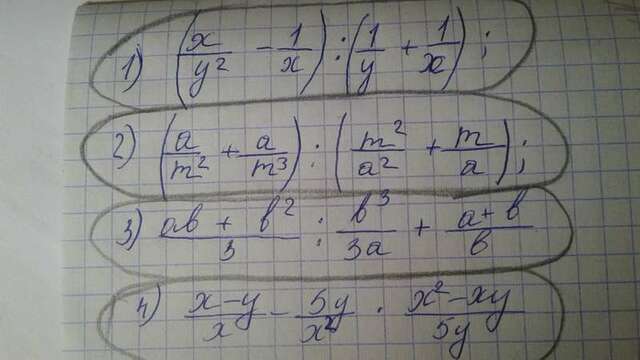 1) (x/y² - 1/x) : (1/y + 1/x) ;
2) (a/m² + a/m³) : (m²/a² + m/a) ;
3) (ab + b²)/3 : b³/3a + (a+b)/b
4) (x-y)/x - 5y/x² · (x²-xy)/5y